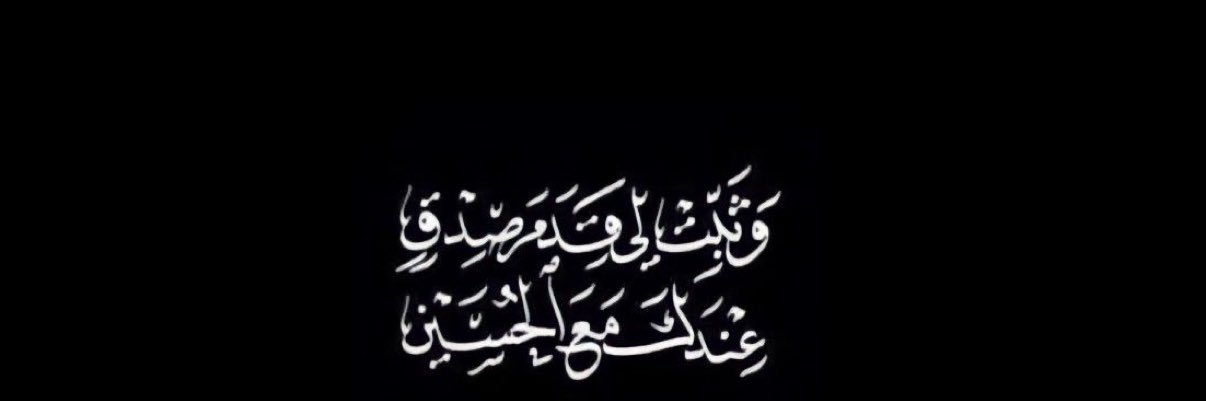 وَثَبِّتْ لِي قَدَمَ صِدْقٍ
عِنْدَكَ مَعَ ٱلْحُسَيْنِ